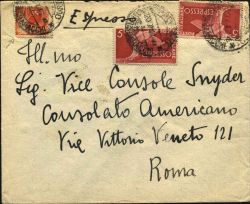 Espresso
Ill.mo
Sig. Vice Console Snyder
Consolato Americano
Via Vittorio Veneto 121
Roma